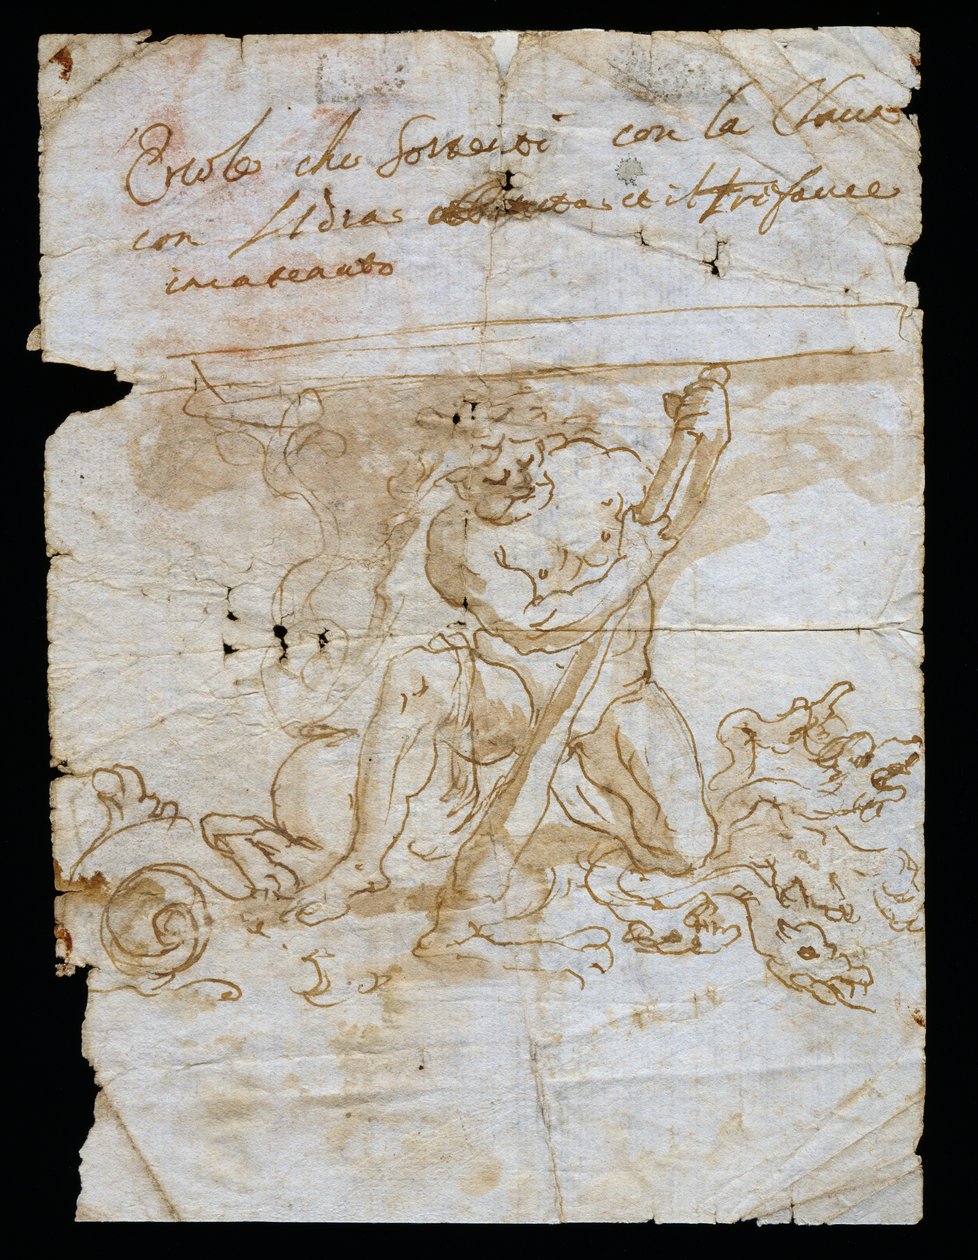 Ercole che sostenti con la Claua
con l'Idra et il trifauce
incatenato